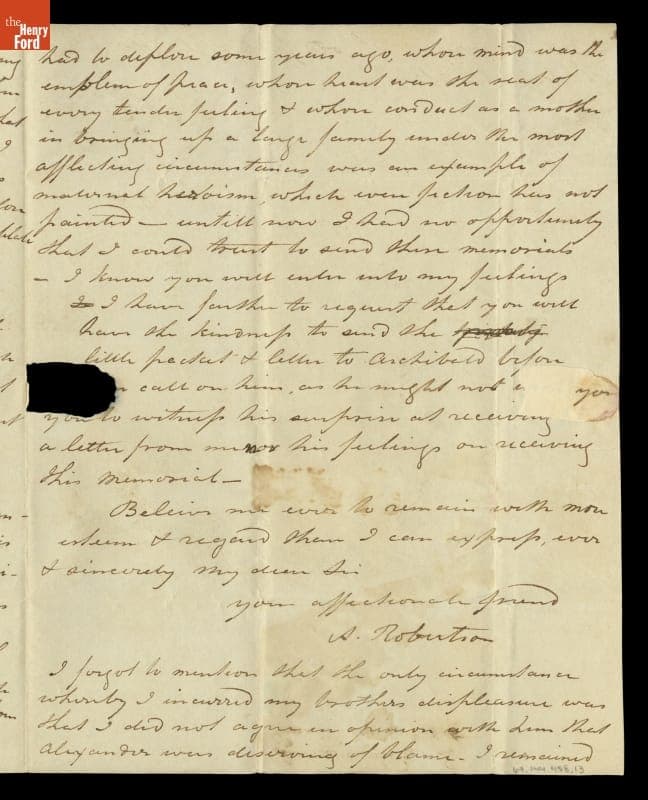 the
Henry
Ford
had to deplore some years ago, whose mind was the
emblem of peace, whose heart was the seat of
every tender feeling & whose conduct as a mother
in bringing up a large family under the most
afflicting circumstances was an example of
maternal heroism, which even fiction has not
painted — untill now I had no opportunity
that I could trust to send these memorials
— I know you will enter into my feelings
& I have farther to request that you will
have the kindness to send the
little packet & letter to Archibald before
call on him, as he might not
you
you to witness his surprise at receiving
a letter from me nor his feelings on receiving
this memorial —
Believe me ever to remain with more
esteem & regard than I can express, ever
& sincerely my dear Sir
your affectionate friend
A. Robertson
I forgot to mention that the only circumstance
whereby I incurred my brothers displeasure was
that I did not agree in opinion with him that
Alexander was deserving of blame - I remained